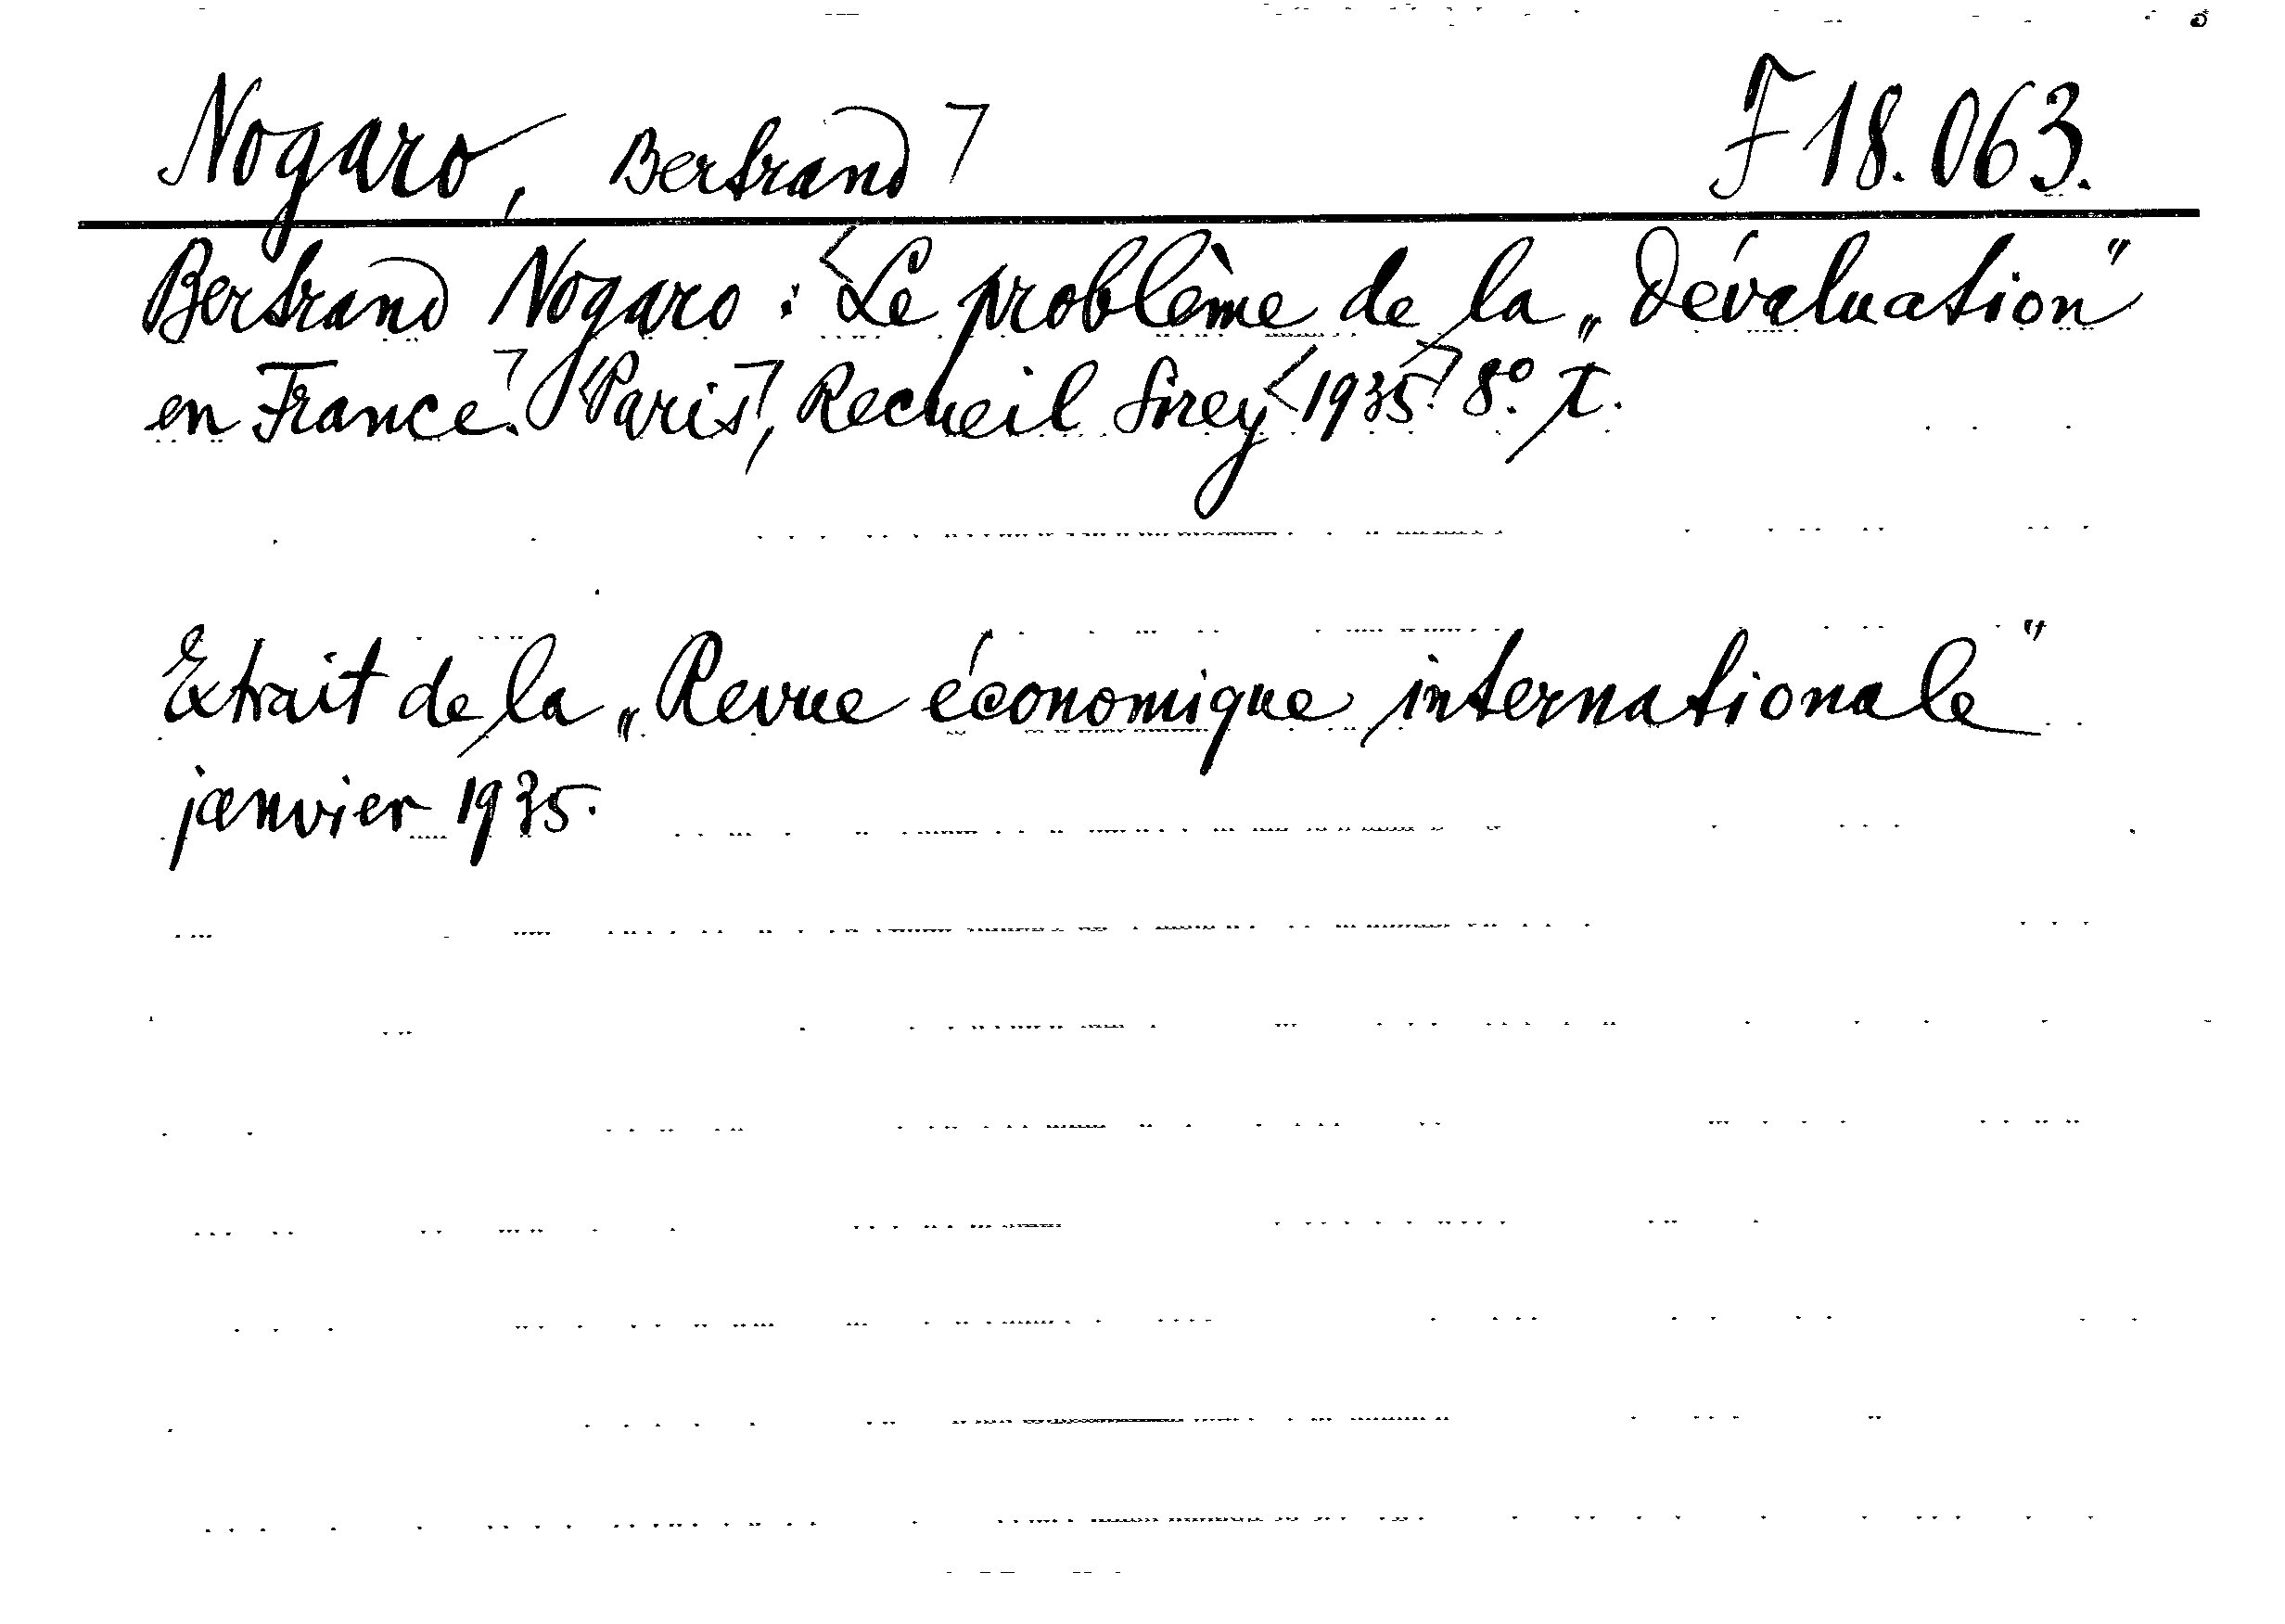 Nogaro, Bertrand ⏋ F 18.063.
Bertrand Nogaro : <Le problème de la „Dévaluation"
en France.⏋ <Paris⏋, Recueil Sirey <1935.⏋ 8º. T.
Extrait de la „Revue économique internationale"
janvier 1935.